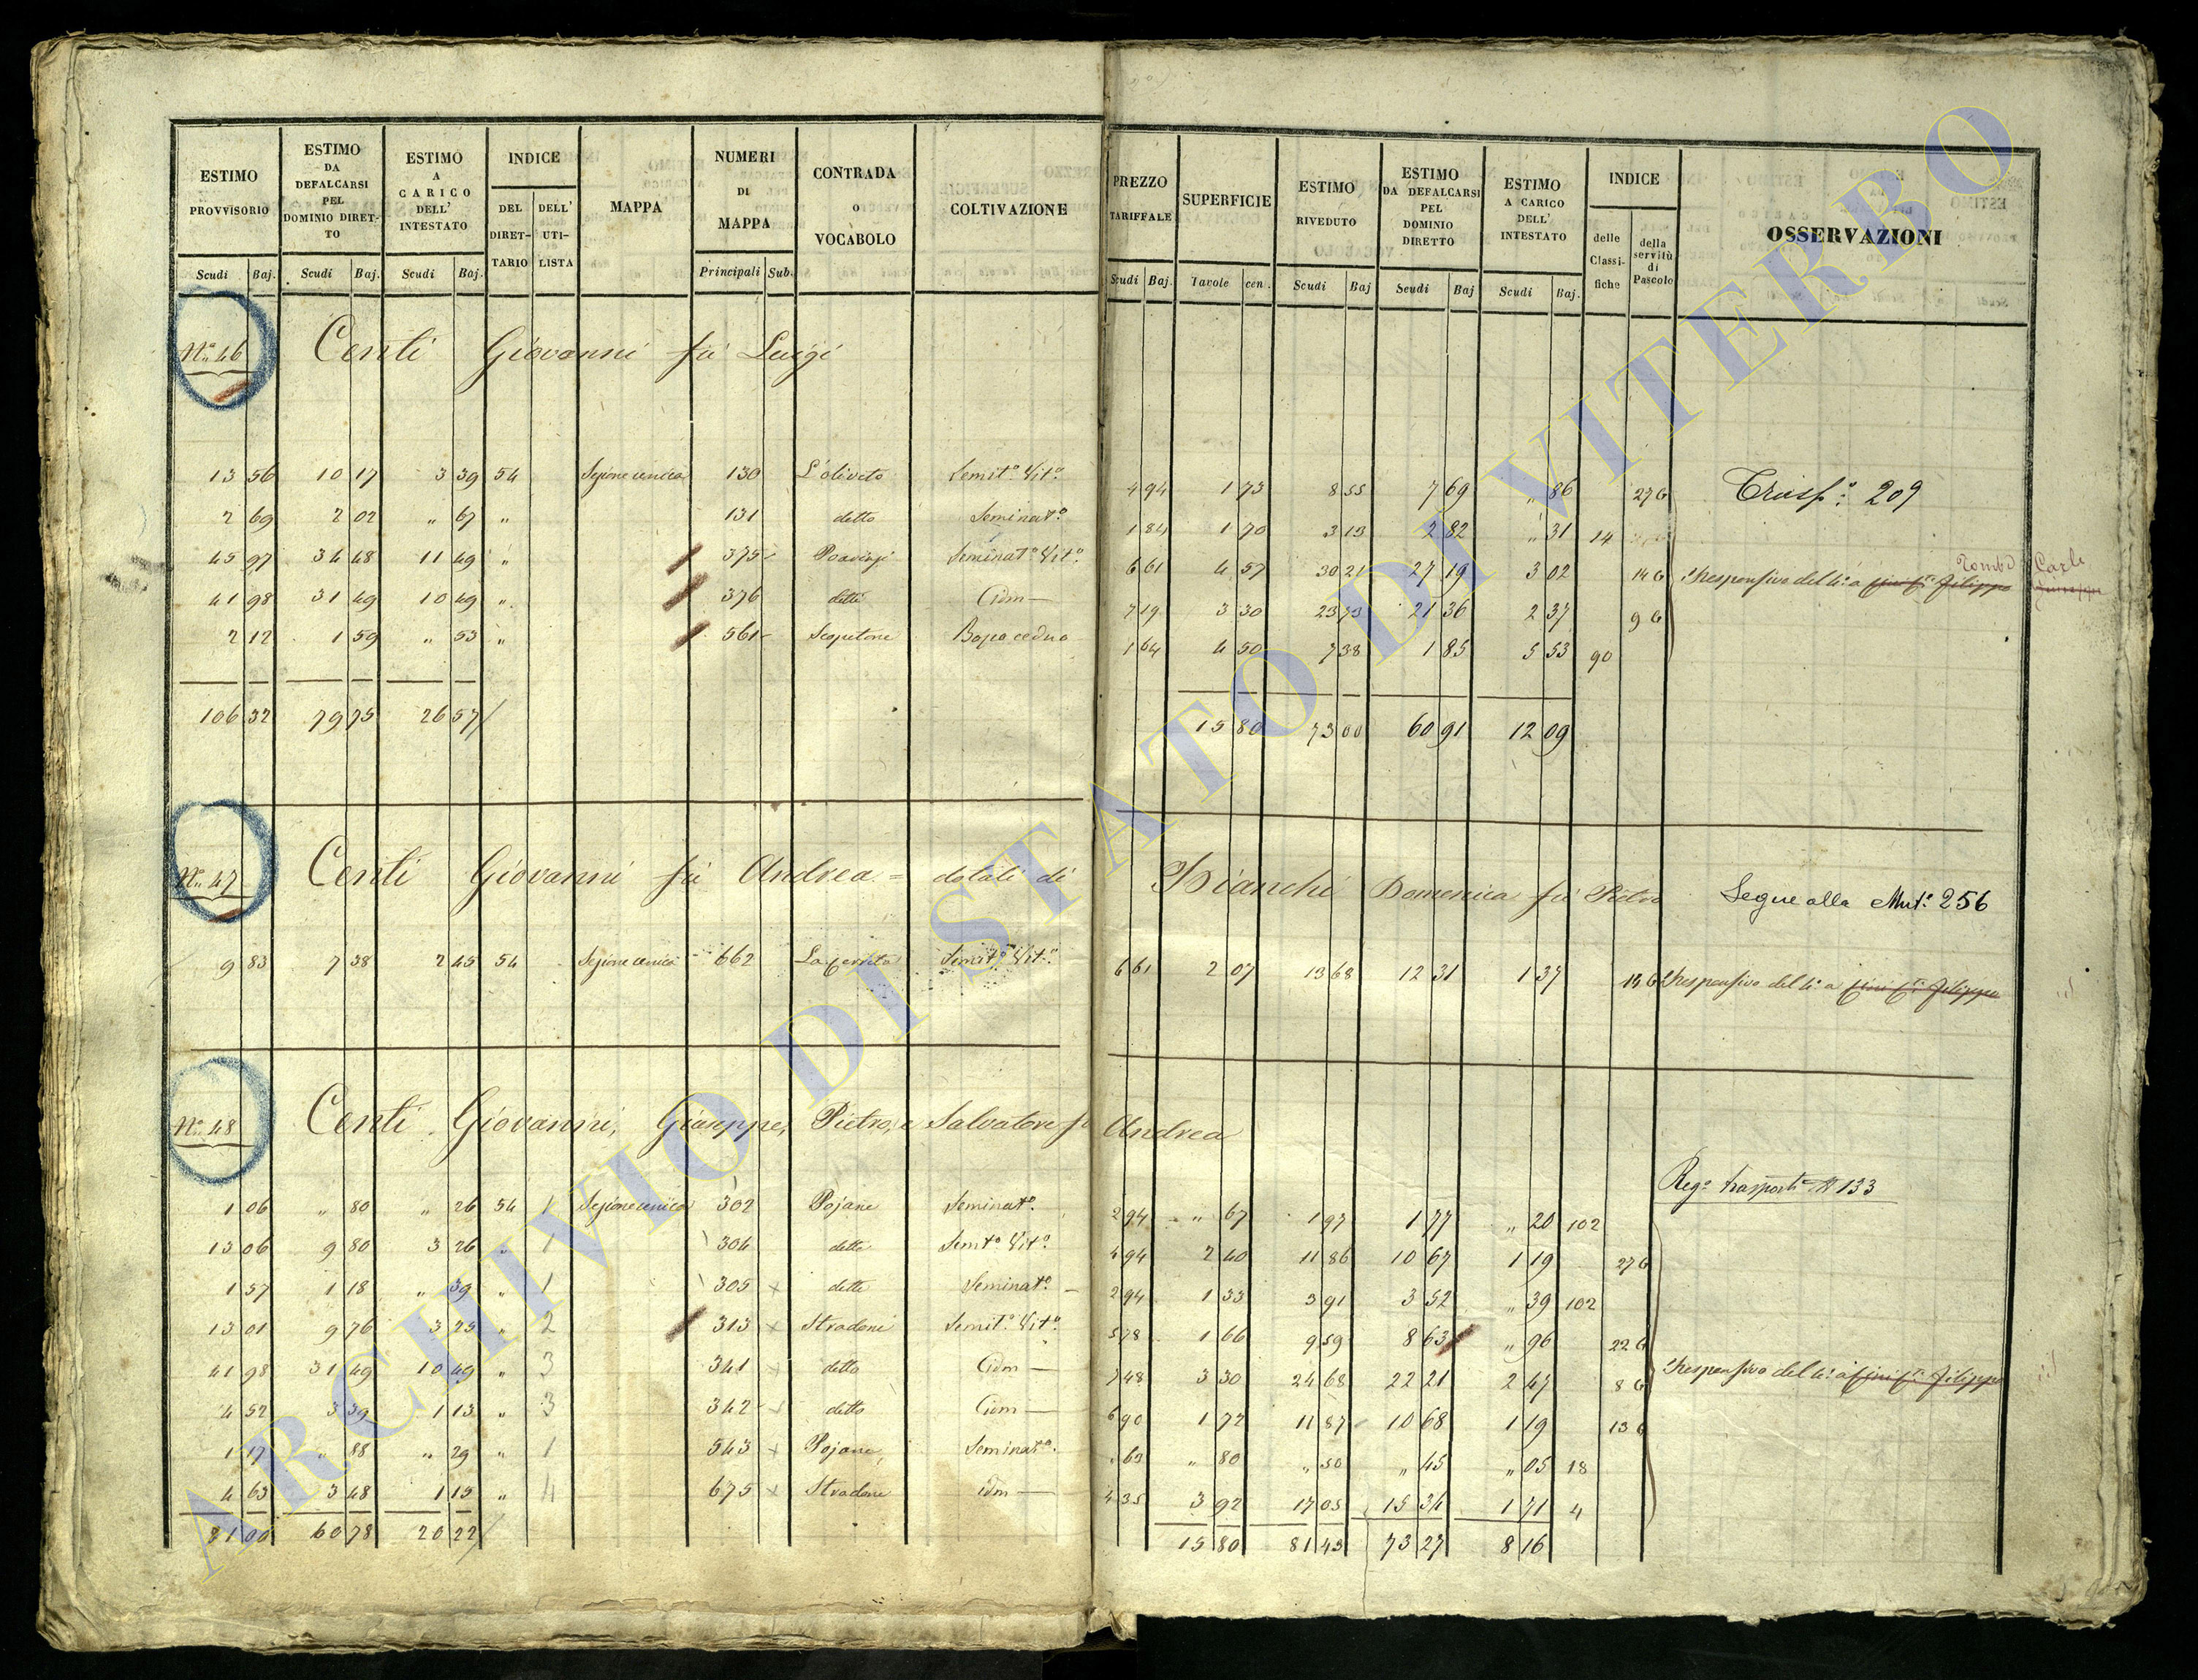 ESTIMO PROVVISORIO Scudi Baj. ESTIMO DA DEFALCARSI PEL DOMINIO DIRETTO Scudi Baj. ESTIMO A CARICO DELL' INTESTATO Scudi Baj. INDICE DEL DIRETTARIO DELL' UTILISTA MAPPA NUMERI DI MAPPA Principali Sub. CONTRADA O VOCABOLO COLTIVAZIONE PREZZO TARIFFALE Scudi Baj. SUPERFICIE Tavole cen. ESTIMO RIVEDUTO Scudi Baj ESTIMO DA DEFALCARSI PEL DOMINIO DIRETTO Scudi Baj ESTIMO A CARICO DELL' INTESTATO Scudi Baj. INDICE delle Classifiche della servitù di Pascolo OSSERVAZIONI
N.° 46 Conti Giovanni fù Luigi
13 56 10 17 3 39 54 Sezione unica 130 L'oliveto Semit.° Vit.° 4 94 1 73 8 55 7 69 " 86 27 G Trasp.° 209
2 69 2 02 " 67 " 131 detto Seminat.° 1 84 1 70 3 13 2 82 " 31 14
45 97 34 48 11 49 " 375 Seminat.° Vit.° 6 61 4 57 30 21 27 19 3 02 14 G Responsivo del 4.° a Carlo
41 98 31 49 10 49 " 376 detto Idm 7 19 3 30 23 73 21 36 2 37 9 G
2 12 1 59 " 53 " 561 Scopetone Bosco ceduo 1 64 4 50 7 38 1 85 5 53 90
106 32 79 75 26 57 15 80 73 00 60 91 12 09
N.° 47 Conti Giovanni fù Andrea = dotali di Bianchi Domenica fù Pietro Segue alla Mut.° 256
9 83 7 38 2 45 54 Sezione unica 662 Semit.° Vit.° 6 61 2 07 13 68 12 31 1 37 Responsivo del 4.° a
N.° 48 Conti Giovanni, Giuseppe, Pietro, e Salvatore fù Andrea
Reg.° trasporti N 133
1 06 " 80 " 26 54 1 Sezione unica 302 Pojane Seminat.° 2 94 " 67 1 97 1 77 " 20 102
13 06 9 80 3 26 " 1 304 detto Semt.° Vit.° 4 94 2 40 11 86 10 67 1 19 27 G
1 57 1 18 " 39 " 1 305 detto Seminat.° 2 94 1 33 3 91 3 52 " 39 102
13 01 9 76 3 25 " 2 313 Stradone Semit.° Vit.° 5 78 1 66 9 59 8 63 " 96 22 G
41 98 31 49 10 49 " 3 341 detto Idm 7 48 3 30 24 68 22 21 2 47 8 G Responsivo del 4.° a
4 52 3 39 1 13 " 3 342 detto Idm 6 90 1 72 11 87 10 68 1 19 13 G
1 17 " 88 " 29 " 1 543 Pojane Seminat.° " 63 " 80 " 50 " 45 " 05 18
4 63 3 48 1 15 " 4 675 Stradone idm 4 35 3 92 17 05 15 34 1 71 4
81 00 60 78 20 22 15 80 81 43 73 27 8 16
ARCHIVIO DI STATO DI VITERBO